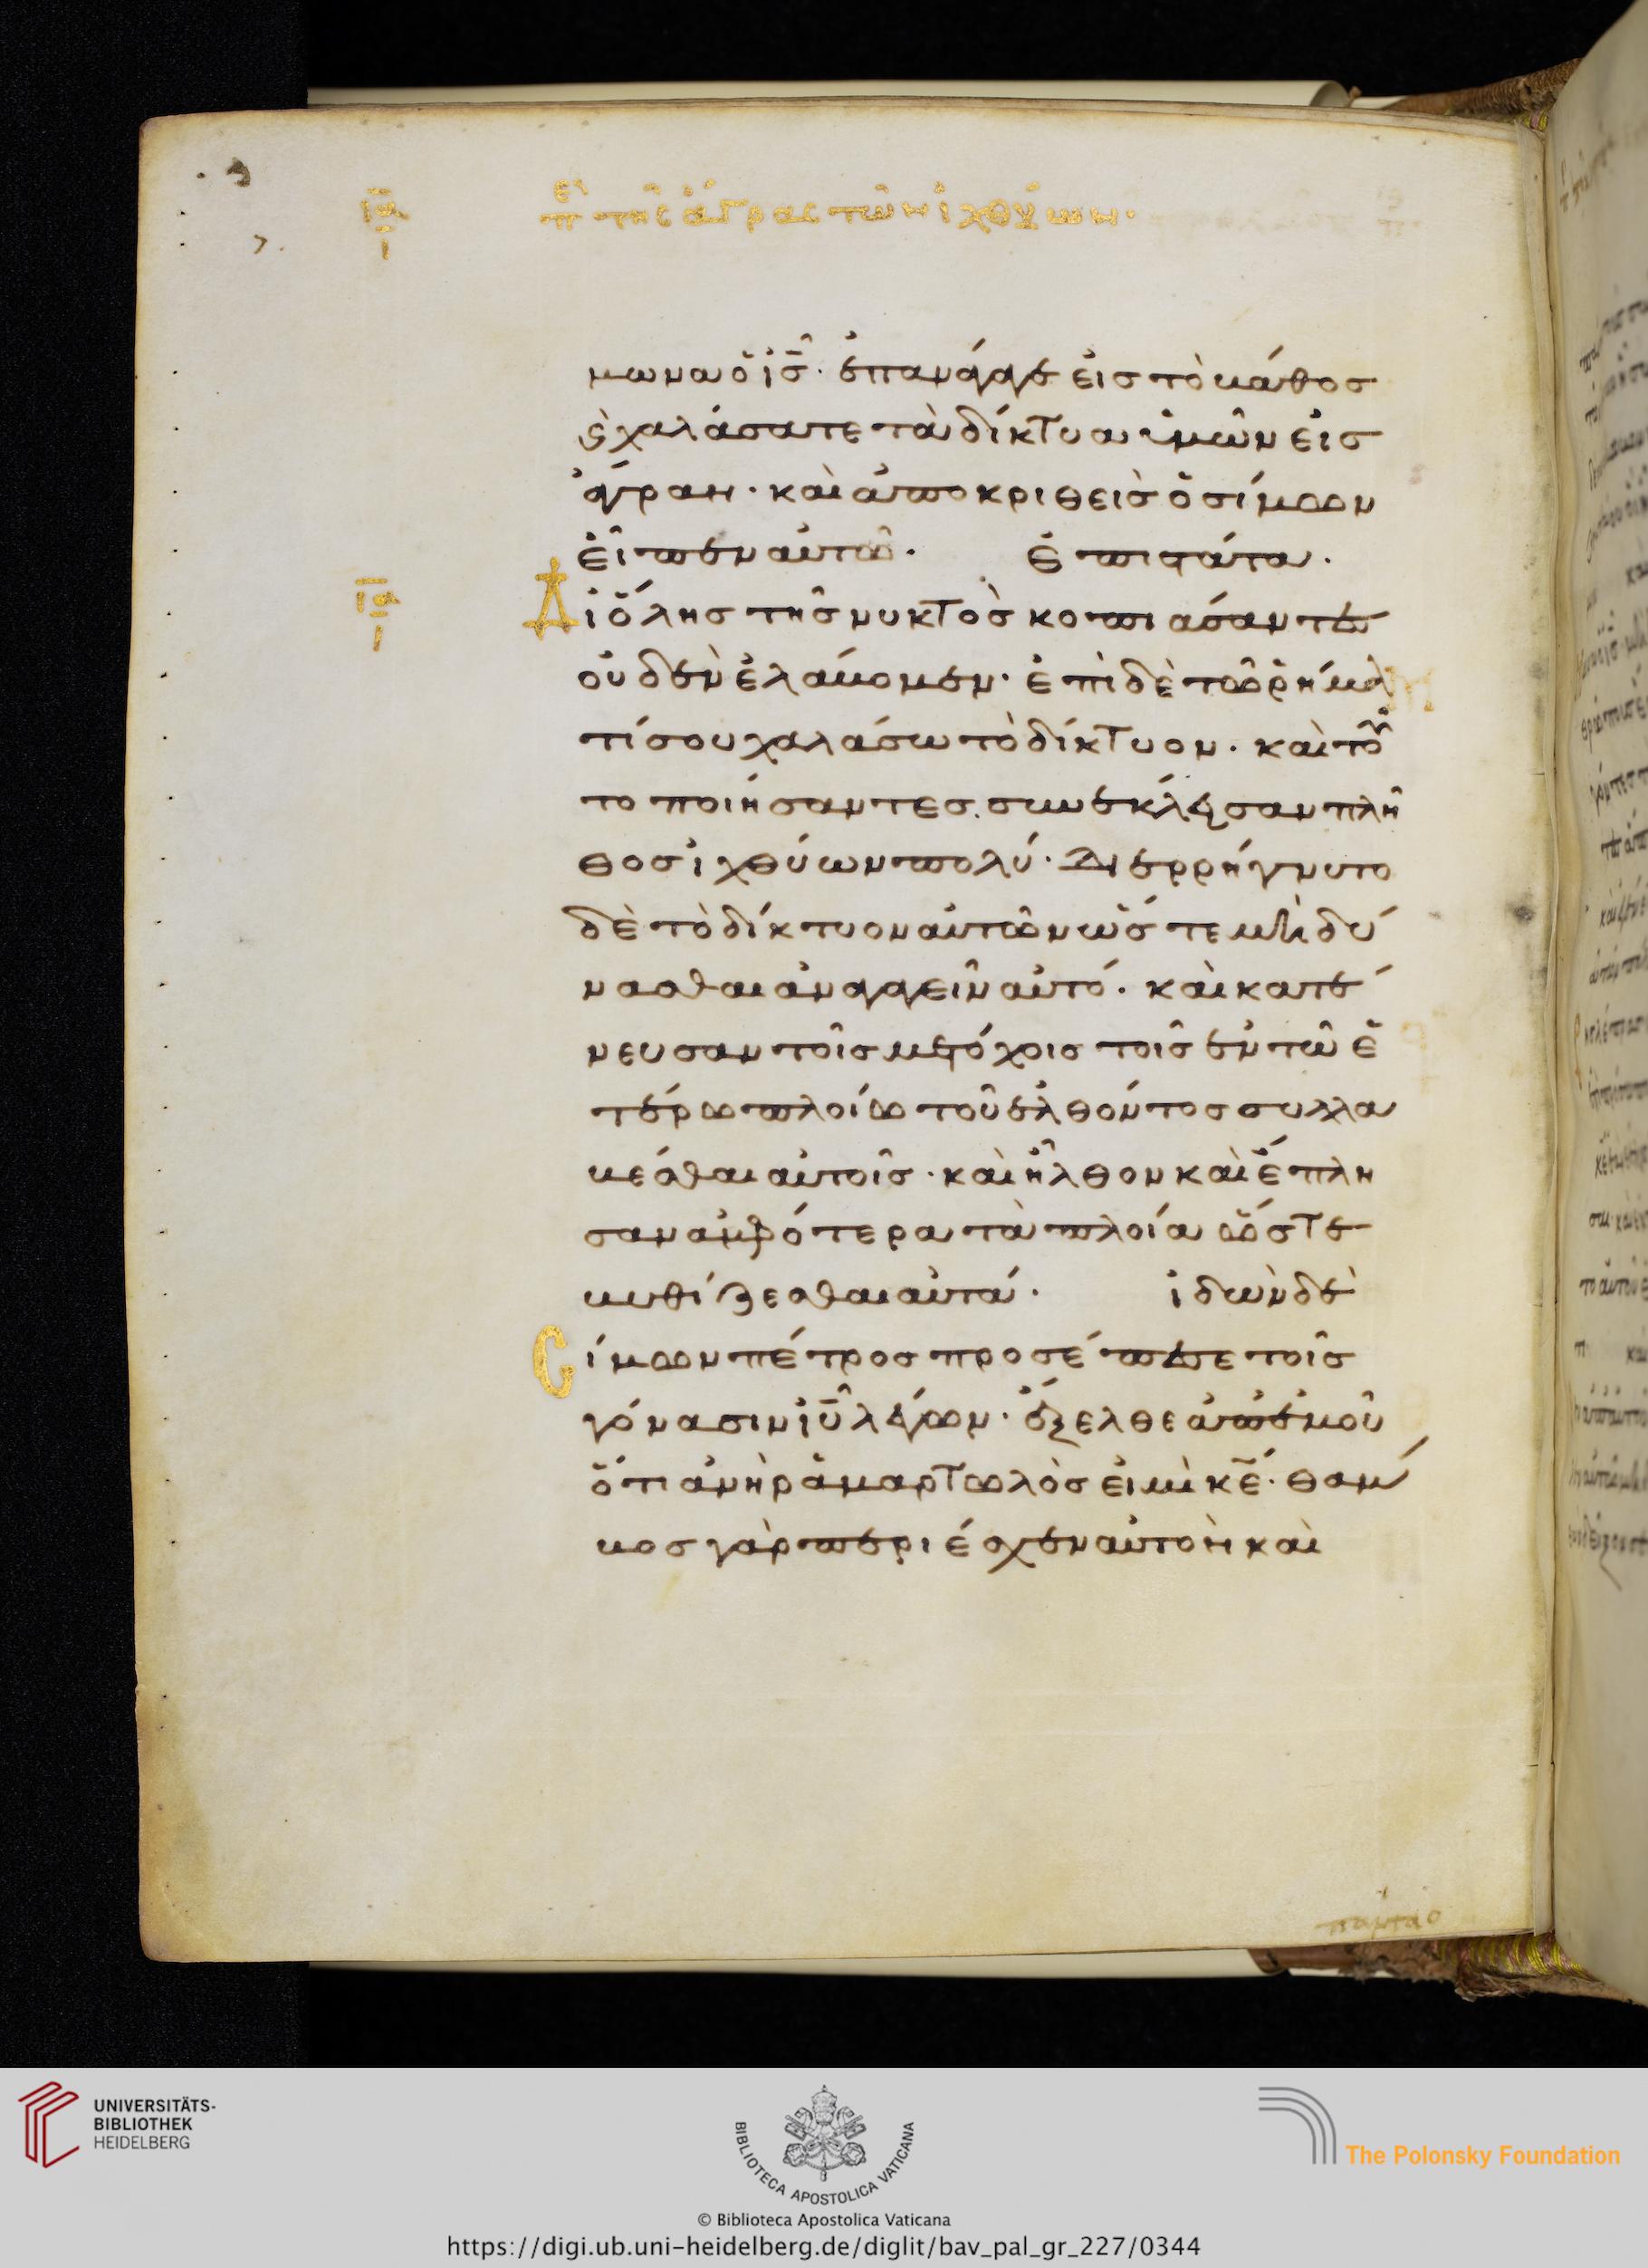 ια
ι
επι της ἄγρας τῶν ἰχθύων·
μωνα ὁ ις̅· ἐπανάγαγε εἰς τὸ βάθος
ϗ χαλάσατε τὰ δίκτυα ὑμῶν εἰς
ἄγραν· καὶ ἀποκριθεὶς ὁ σίμων
εἶπεν αὐτῶ· ἐπιστάτα·
Δι ὅλης τῆς νυκτὸς κοπιάσαντες
οὐδὲν ἐλάβομεν· ἐπὶ δὲ τῶ ῥήμα
τί σου χαλάσω τὸ δίκτυον· καὶ τοῦ
το ποιήσαντες συνέκλεισαν πλῆ
θος ἰχθύων πολύ· διερρήγνυτο
δὲ τὸ δίκτυον αὐτῶν ὥστε μὴ δύ
νασθαι ἀναγαγεῖν αὐτό· καὶ κατέ
νευσαν τοῖς μετόχοις τοῖς ἐν τῶ ἑ
τέρω πλοίω τοῦ ἐλθόντος συλλα
βέσθαι αὐτοῖς· καὶ ἦλθον καὶ ἔπλη
σαν ἀμφότερα τὰ πλοία ὥστε
βυθίζεσθαι αὐτά· ἰδὼν δὲ
Σίμων πέτρος προσέπεσε τοῖς
γόνασιν ιυ̅ λέγων· ἔξελθε ἀπ ἐμοῦ
ὅτι ἀνὴρ ἁμαρτωλὸς εἰμὶ κε̅· θάμ
βος γὰρ περιέσχεν αὐτὸν καὶ
ια
ι
πάντας
UNIVERSITÄTS-
BIBLIOTHEK
HEIDELBERG
BIBLIOTECA APOSTOLICA VATICANA
The Polonsky Foundation
© Biblioteca Apostolica Vaticana
https://digi.ub.uni-heidelberg.de/diglit/bav_pal_gr_227/0344